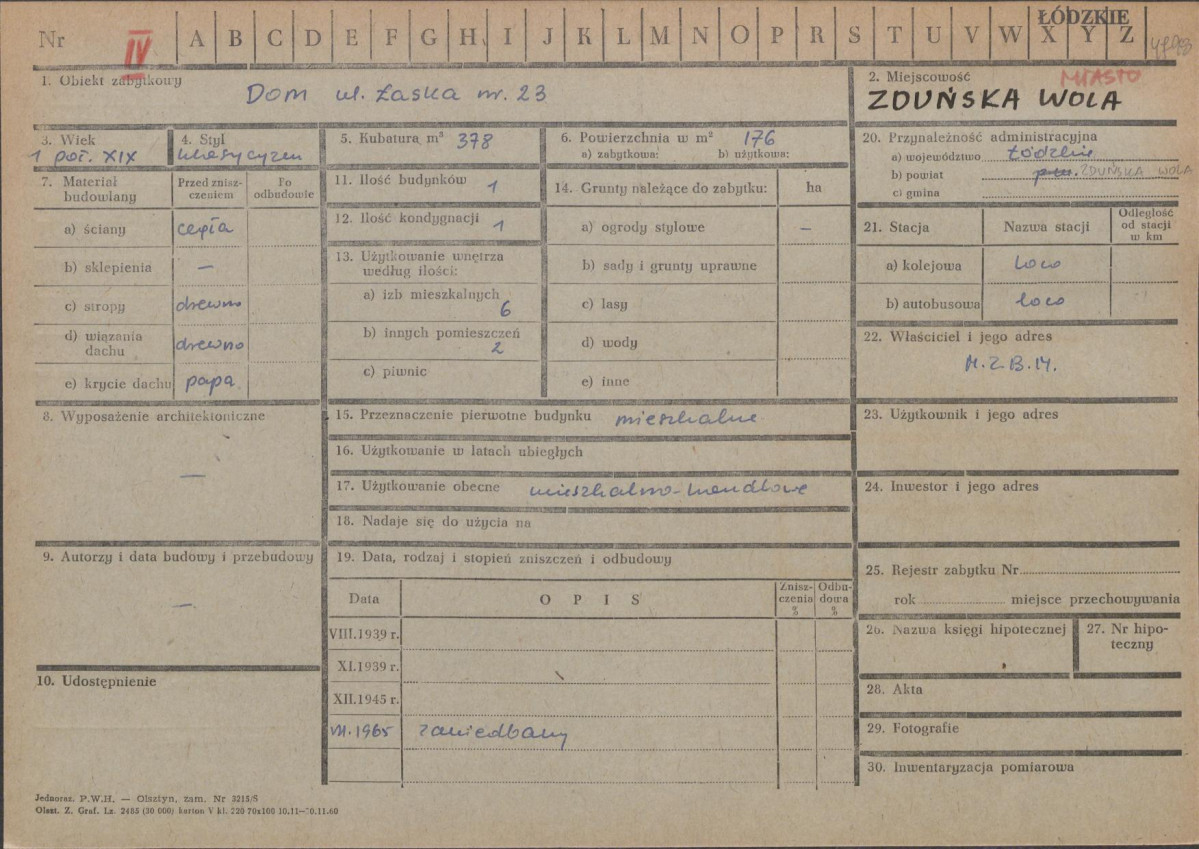 Nr IV A B C D E F G H I J K L M N O P R S T U V W X Y Z
ŁÓDZKIE
1. Obiekt zabytkowy
Dom ul. Łaska nr. 23
2. Miejscowość
MIASTO
ZDUŃSKA WOLA
3. Wiek
1 poł. XIX
4. Styl
klasycyzm
5. Kubatura m³ 378
6. Powierzchnia w m² 176
a) zabytkowa: b) użytkowa:
7. Materiał budowlany
Przed zniszczeniem
Po odbudowie
a) ściany cegła
b) sklepienia —
c) stropy drewno
d) wiązania dachu drewno
e) krycie dachu papa
8. Wyposażenie architektoniczne
—
9. Autorzy i data budowy i przebudowy
—
10. Udostępnienie
11. Ilość budynków 1
12. Ilość kondygnacji 1
13. Użytkowanie wnętrza
według ilości:
a) izb mieszkalnych
6
b) innych pomieszczeń
2
c) piwnic
14. Grunty należące do zabytku: ha
a) ogrody stylowe —
b) sady i grunty uprawne
c) lasy
d) wody
e) inne
15. Przeznaczenie pierwotne budynku mieszkalne
16. Użytkowanie w latach ubiegłych
17. Użytkowanie obecne mieszkalno-handlowe
18. Nadaje się do użycia na
19. Data, rodzaj i stopień zniszczeń i odbudowy
Data OPIS Zniszczenia % Odbudowa %
VIII.1939 r.
XI.1939 r.
XII.1945 r.
VII.1965 zaniedbany
20. Przynależność administracyjna
a) województwo Łódzkie
b) powiat ZDUŃSKA WOLA
c) gmina
21. Stacja Nazwa stacji Odległość od stacji w km
a) kolejowa loco
b) autobusowa loco
22. Właściciel i jego adres
M.Z.B.M.
23. Użytkownik i jego adres
24. Inwestor i jego adres
25. Rejestr zabytku Nr
rok miejsce przechowywania
26. Nazwa księgi hipotecznej
27. Nr hipoteczny
28. Akta
29. Fotografie
30. Inwentaryzacja pomiarowa
Jednoraz. P.W.H. — Olsztyn, zam. Nr 2215/S
Olszt. Z. Graf. Lz. 2405 (30 000) karton V kl. 220 70x100 10.11—10.11.60